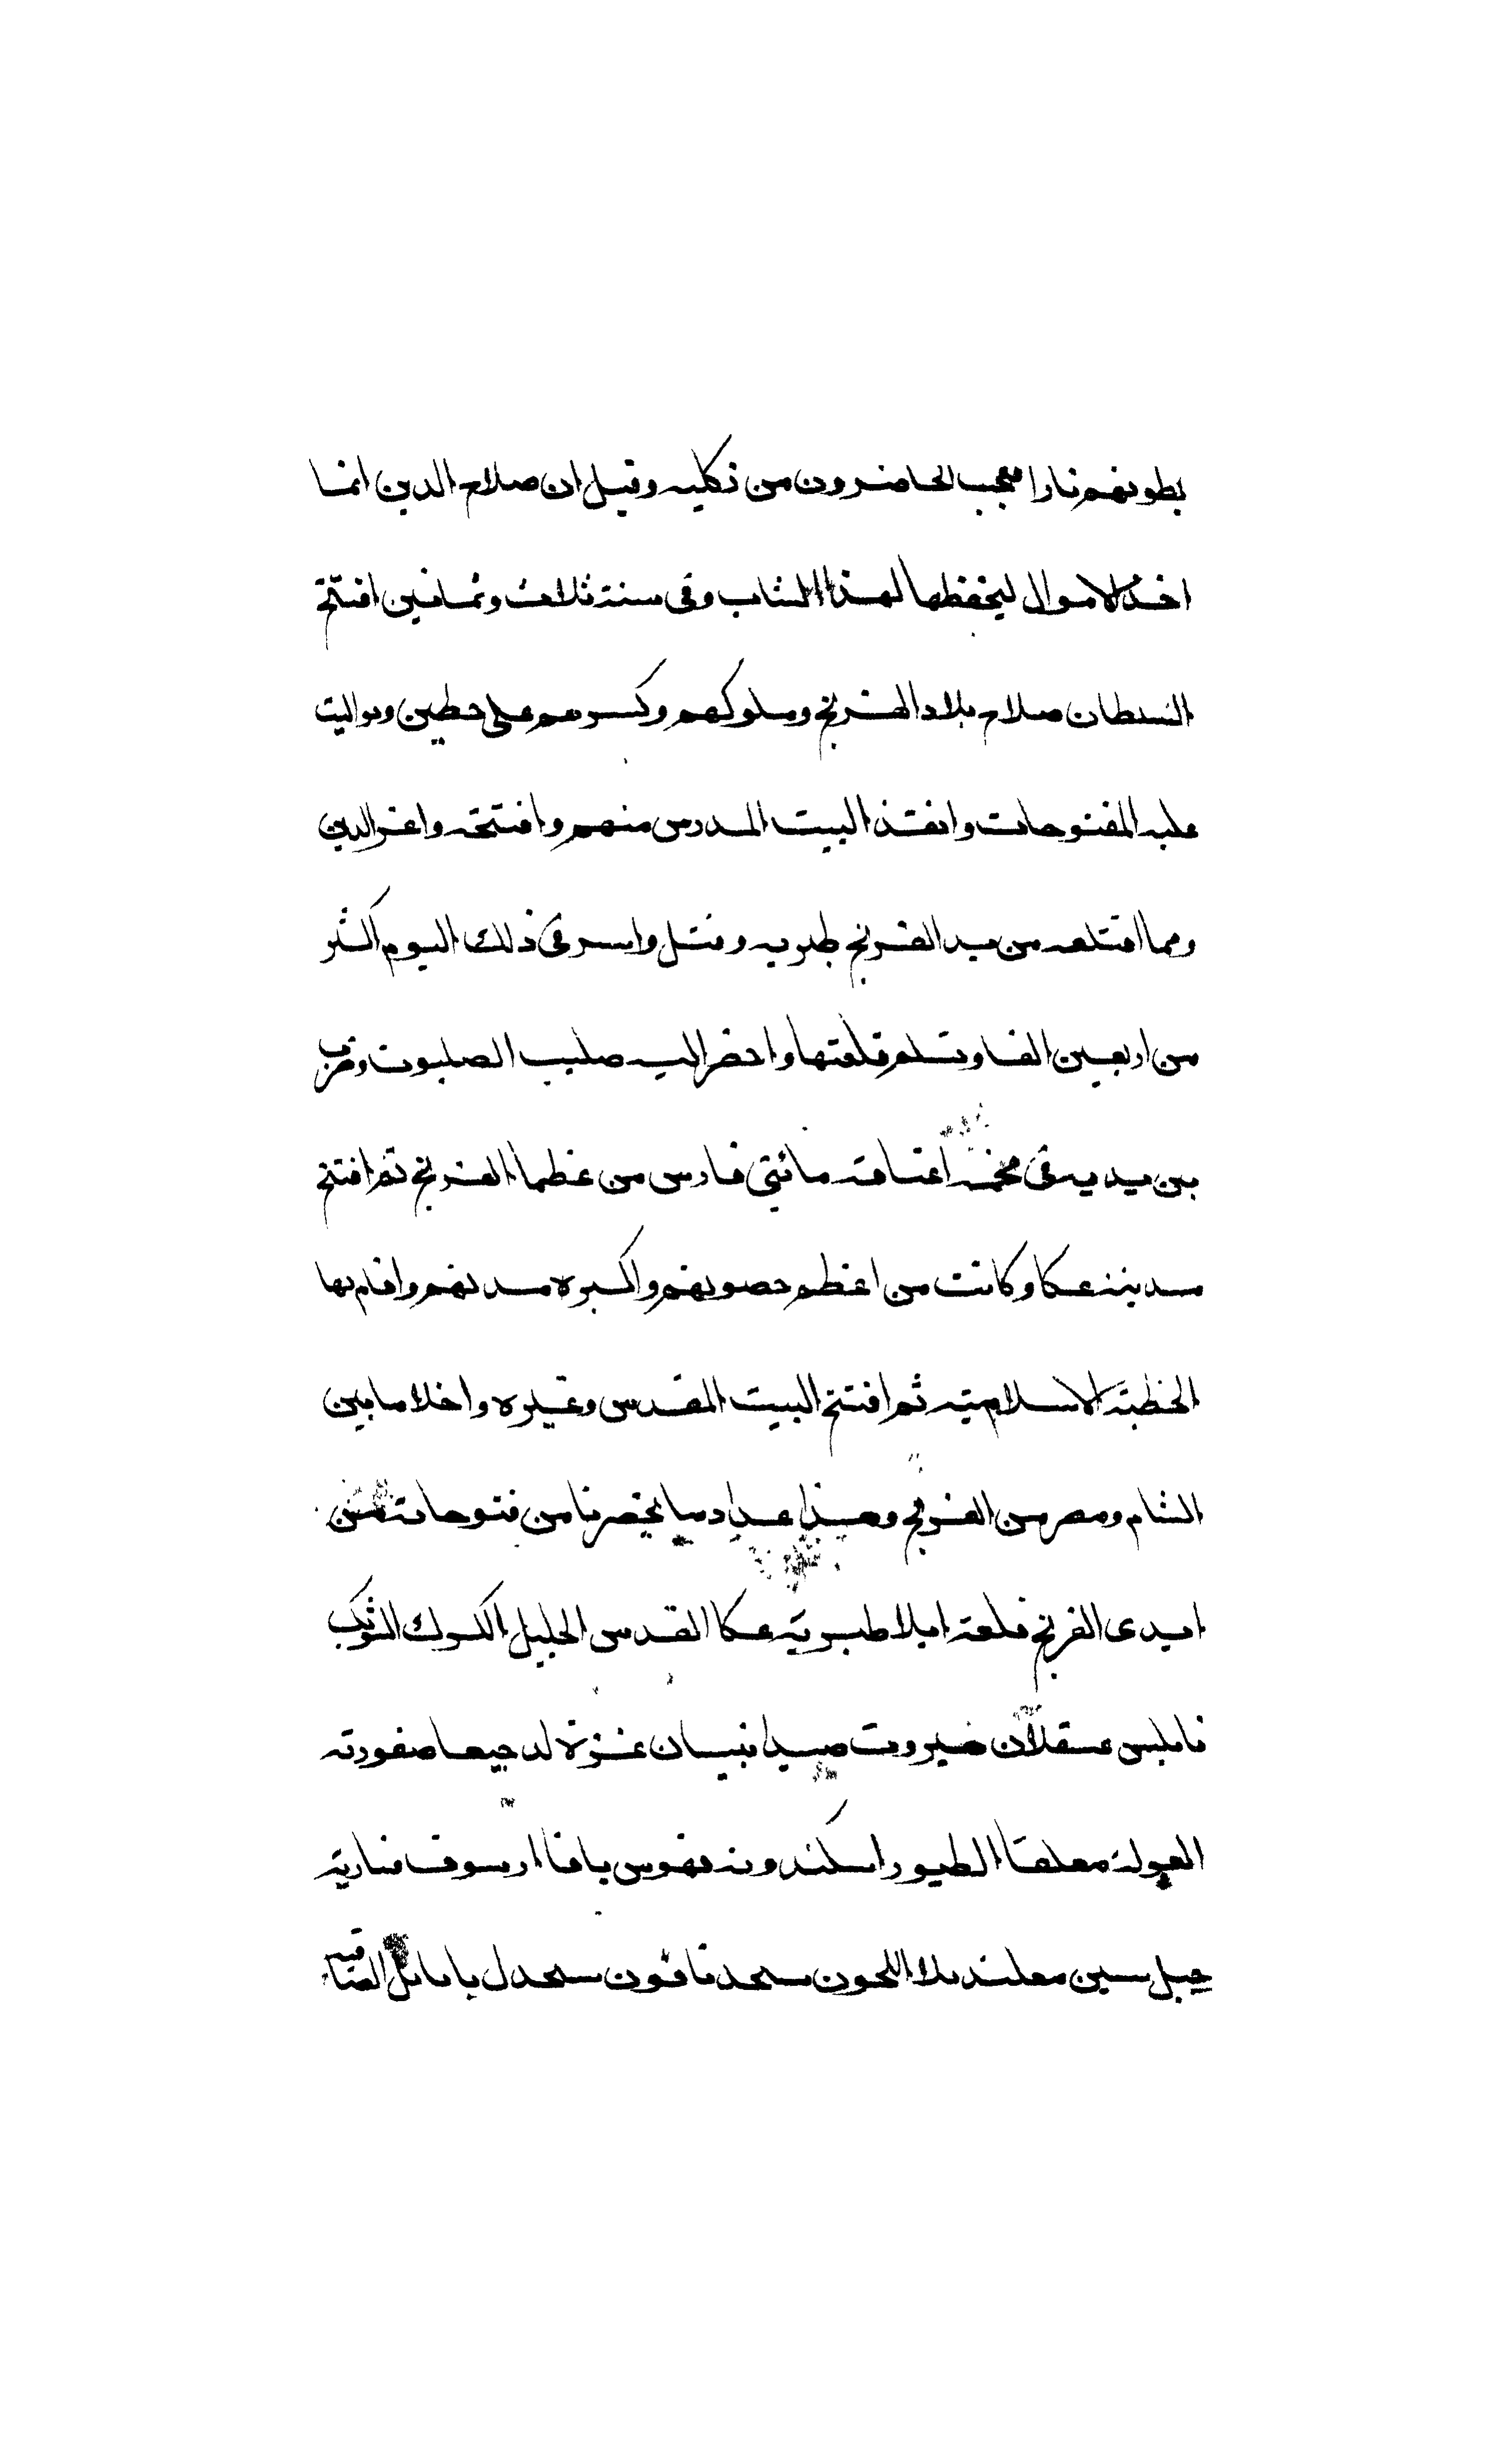 بطونهم نارا فعجب الحاضرون من نكليه وقيل ان صلاح الدين انما
اخذ الاموال ليحفظها لهذا الشاب وفى سنة ثلاث وثمانين افتتح
السلطان صلاح بلاد الفرنج وملوكهم وكسرهم على حطين وتواليت
عليه المفتوحات وانقذ البيت المقدس منهم وافتتحه واعز الدين
ومما اقتلعه من يد الفرنج طبريه وقتل واسر فى ذلك اليوم اكثر
من اربعين الفا وتسلم قلعتها واحضر اليه صليب الصلبوت وضرب
بين يديه فى مخيمه اعناقه مائتي فارس من عظما الفرنج ثم افتتح
مدينة عكا وكانت من اعظم حصونهم واكبره مدنهم واقام بها
الخطبة الاسلامية ثم افتتح البيت المقدس وغيره واخلا ما بين
الشام ومصر من الفرنج وهذا عداد ما يحضرنا من فتوحاته من
ايدى الفرنج قلعة ايلا طبرية عكا القدس الخليل الكرك الشوبك
نابلس عسقلان بيروت صيدا بيسان غزة لد حيفا صفورية
الفولة معلقا الطيور اسكندرونه قهوس يافا ارسوف قسارية
جبل سين معلند بلا اللجون سجد ناقون سجدل يابا تل الصافيه